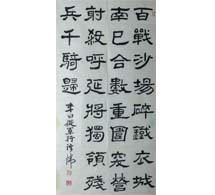 百戰沙場碎鐵衣城
南已合數重圍突營
射殺呼延將獨領殘
兵千騎歸
李白從軍行